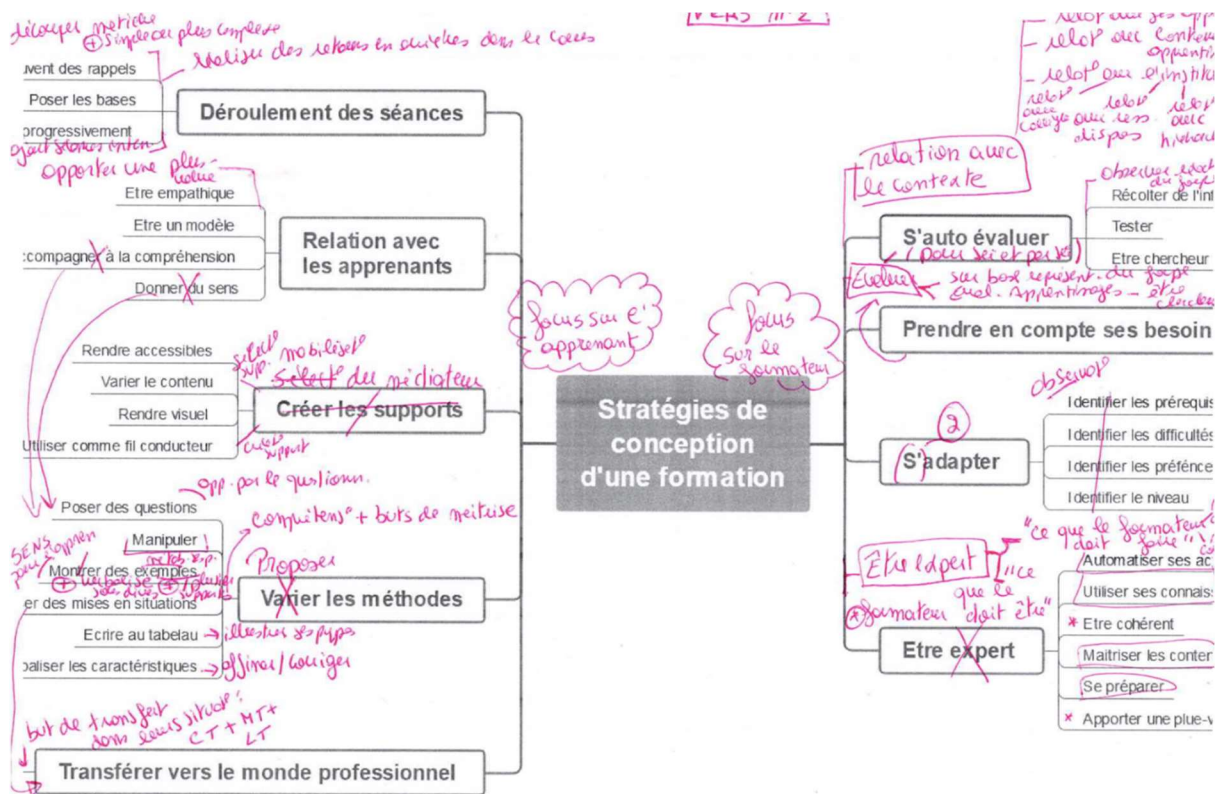 découper
⊕ simple au plus complexe
réaliser des retours en arrière dans le cours
uvent des rappels
Poser les bases
progressivement
Déroulement des séances
apporter une plus-
value
Etre empathique
Etre un modèle
ccompagner à la compréhension
Donner du sens
Relation avec
les apprenants
focus sur l'
apprenant
Rendre accessibles
Varier le contenu
Rendre visuel
Utiliser comme fil conducteur
mobilisés
du médiateur
Créer les supports
support
Poser des questions
Manipuler
Montrer des exemples
er des mises en situations
Ecrire au tabelau
baliser les caractéristiques
app. par le questionn.
+ buts de maitrise
SENS
⊕ verbalise
supports
illustrer ses
affiner/corriger
Proposer
Varier les méthodes
but de transfert
dans leurs situat° :
CT + MT +
LT
Transférer vers le monde professionnel
Stratégies de
conception
d'une formation
VERS
focus
sur le
formateur
- relat° avec contenu
- relat° avec l'institu
relat°
avec
relat°
avec ress.
dispos
relat°
avec
relation avec
le contexte
S'auto évaluer
Récolter de l'inf
Tester
Etre chercheur
(pour soi et par soi)
Évaluer
sur base représent. du groupe
Apprentissages - être
Prendre en compte ses besoin
observat°
2
S'adapter
Identifier les prérequis
Identifier les difficultés
Identifier les préférence
Identifier le niveau
Être expert
"ce que le formateur
doit faire"
"ce
que le
* formateur doit être"
Etre expert
Automatiser ses ac
Utiliser ses connais
* Etre cohérent
Maitriser les conter
Se préparer
* Apporter une plue-v